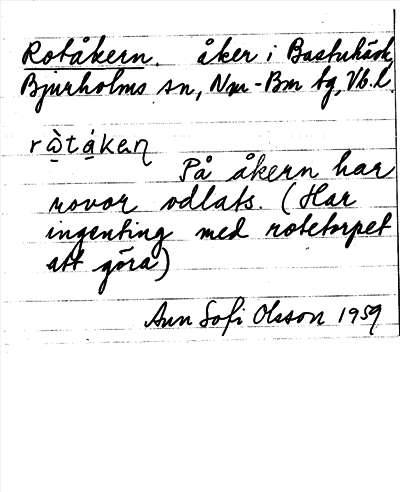 Rotåkern. åker i Bastuträsk,
Bjurholms sn, Nm-Bm tg, Vb.l.
ròtákeɳ
På åkern har
rovor odlats. (Har
ingenting med rotetorpet
att göra)
Ann Sofi Olsson 1959